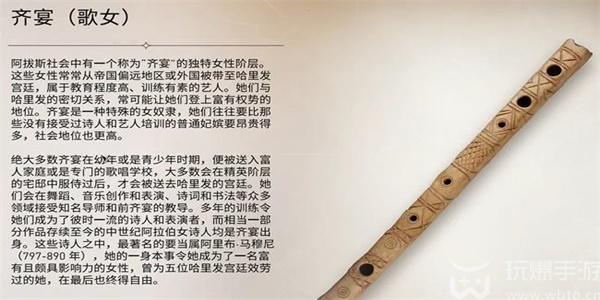 齐宴（歌女）
阿拔斯社会中有一个称为“齐宴”的独特女性阶层。
这些女性常常从帝国偏远地区或外国被带至哈里发
宫廷，属于教育程度高、训练有素的艺人。她们与
哈里发的密切关系，常可能让她们登上富有权势的
地位。齐宴是一种特殊的女奴隶，她们往往要比那
些没有接受过诗人和艺人培训的普通妃嫔要昂贵得
多，社会地位也更高。
绝大多数齐宴在幼年或是青少年时期，便被送入富
人家庭或是专门的歌唱学校，大多数会在精英阶层
的宅邸中服侍过后，才会被送去哈里发的宫廷。她
们会在舞蹈、音乐创作和表演、诗词和书法等众多
领域接受知名导师和前齐宴的教导。多年的训练令
她们成为了彼时一流的诗人和表演者，而相当一部
分作品存续至今的中世纪阿拉伯女诗人均是齐宴出
身。这些诗人之中，最著名的要当属阿里布·马穆尼
（797-890 年），她的一身本事令她成为了一名富
有且颇具影响力的女性，曾为五位哈里发宫廷效劳
过的她，在最后也终得自由。
玩爆手游
www.wbto.cn